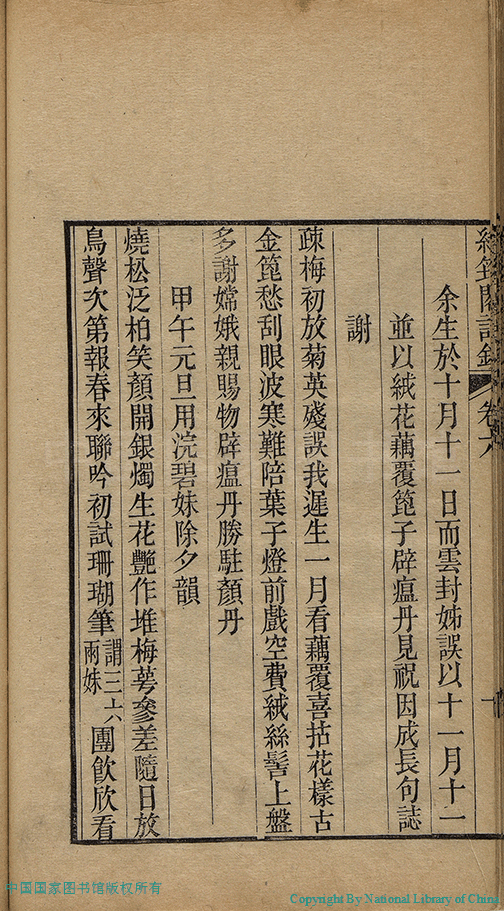 余生於十月十一日而雲封姊誤以十一月十一
並以絨花藕覆篦子辟瘟丹見祝因成長句誌
謝
疎梅初放菊英殘誤我遲生一月看藕覆喜拈花樣古
金篦愁刮眼波寒難陪葉子燈前戲空費絨絲髻上盤
多謝嫦娥親賜物辟瘟丹勝駐顏丹
甲午元旦用浣碧妹除夕韻
燒松泛柏笑顏開銀燭生花艷作堆梅萼參差隨日放
鳥聲次第報春來聯吟初試珊瑚筆謂三六兩妹團飲欣看
卷六
中国国家图书馆版权所有
Copyright By National Library of China